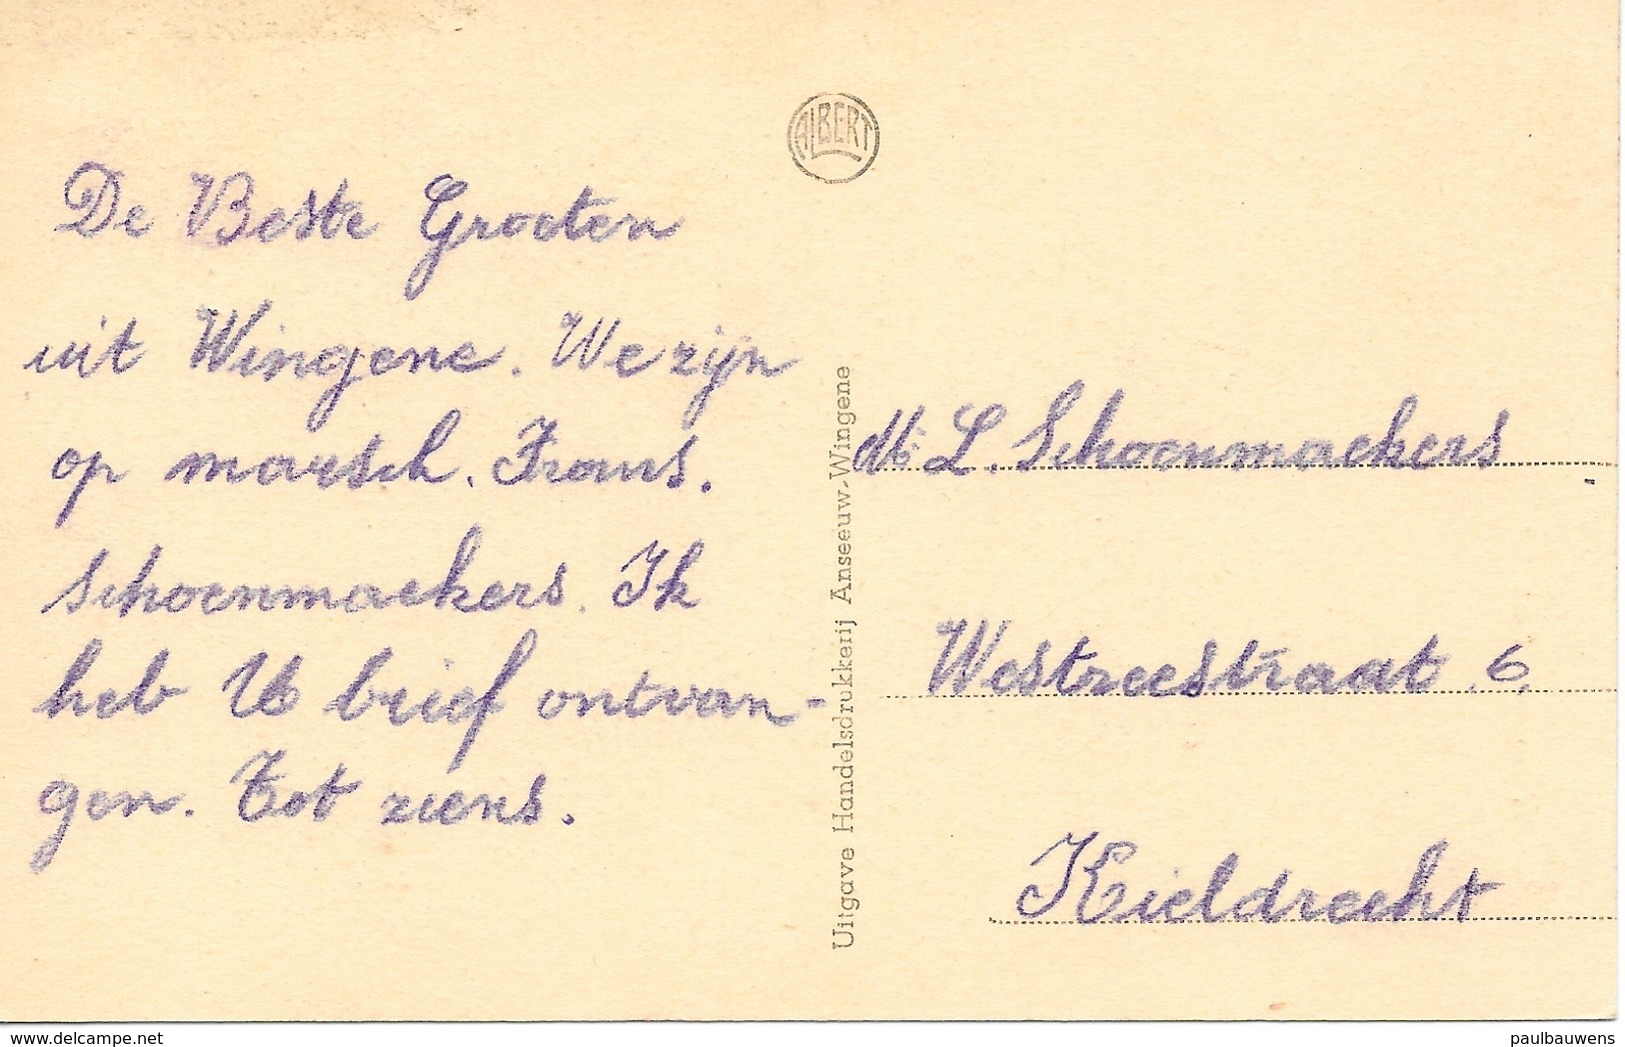 ALBERT
De Beste Groeten
uit Wingene. We zijn
op marsch. Frans.
Schoenmaekers. Ik
heb U brief ontvan-
gen. Tot ziens.
Uitgave Handelsdrukkerij Anseeuw-Wingene
Mr L. Schoenmaekers
Westreestraat 6.
Kieldrecht
delcampe.net
paulbauwens